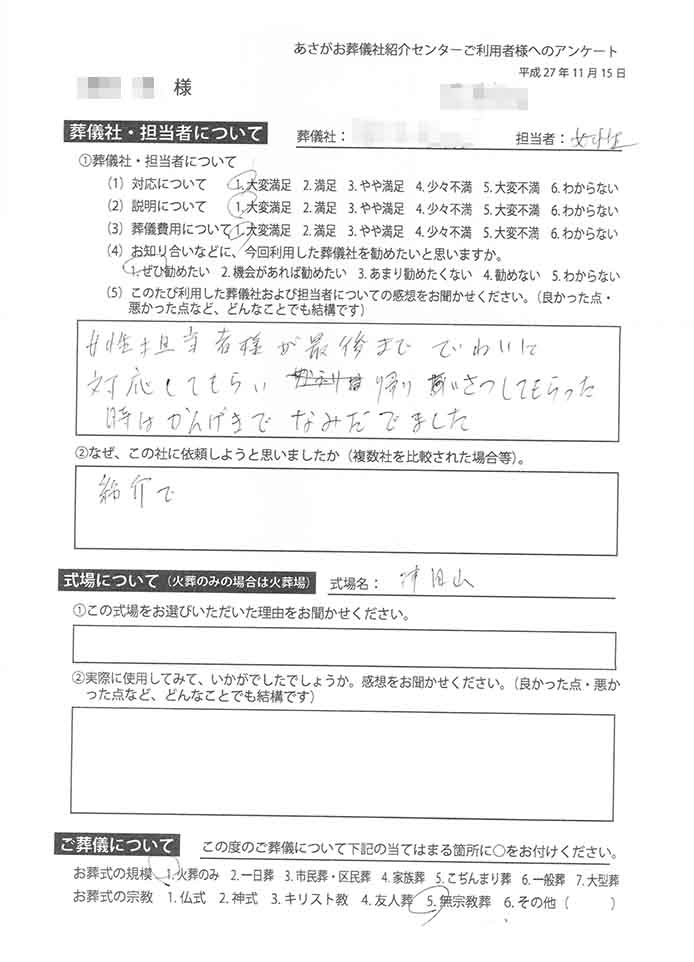 あさがお葬儀社紹介センターご利用者様へのアンケート
平成27年11月15日
様
葬儀社・担当者について 葬儀社： 担当者：女性
①葬儀社・担当者について
(1) 対応について 1.大変満足 2.満足 3.やや満足 4.少々不満 5.大変不満 6.わからない
(2) 説明について 1.大変満足 2.満足 3.やや満足 4.少々不満 5.大変不満 6.わからない
(3) 葬儀費用について 1.大変満足 2.満足 3.やや満足 4.少々不満 5.大変不満 6.わからない
(4) お知り合いなどに、今回利用した葬儀社を勧めたいと思いますか。
1.ぜひ勧めたい 2.機会があれば勧めたい 3.あまり勧めたくない 4.勧めない 5.わからない
(5) このたび利用した葬儀社および担当者についての感想をお聞かせください。（良かった点・
悪かった点など、どんなことでも結構です）
女性担当者様が最後まで でいねいに
対応してもらい 帰り あいさつしてもらった
時はかんげきで なみだでました
②なぜ、この社に依頼しようと思いましたか（複数社を比較された場合等）。
紹介で
式場について（火葬のみの場合は火葬場） 式場名：津田山
①この式場をお選びいただいた理由をお聞かせください。
②実際に使用してみて、いかがでしたでしょうか。感想をお聞かせください。（良かった点・悪か
った点など、どんなことでも結構です）
ご葬儀について この度のご葬儀について下記の当てはまる箇所に○をお付けください。
お葬式の規模 1.火葬のみ 2.一日葬 3.市民葬・区民葬 4.家族葬 5.こぢんまり葬 6.一般葬 7.大型葬
お葬式の宗教 1.仏式 2.神式 3.キリスト教 4.友人葬 5.無宗教葬 6.その他（ ）